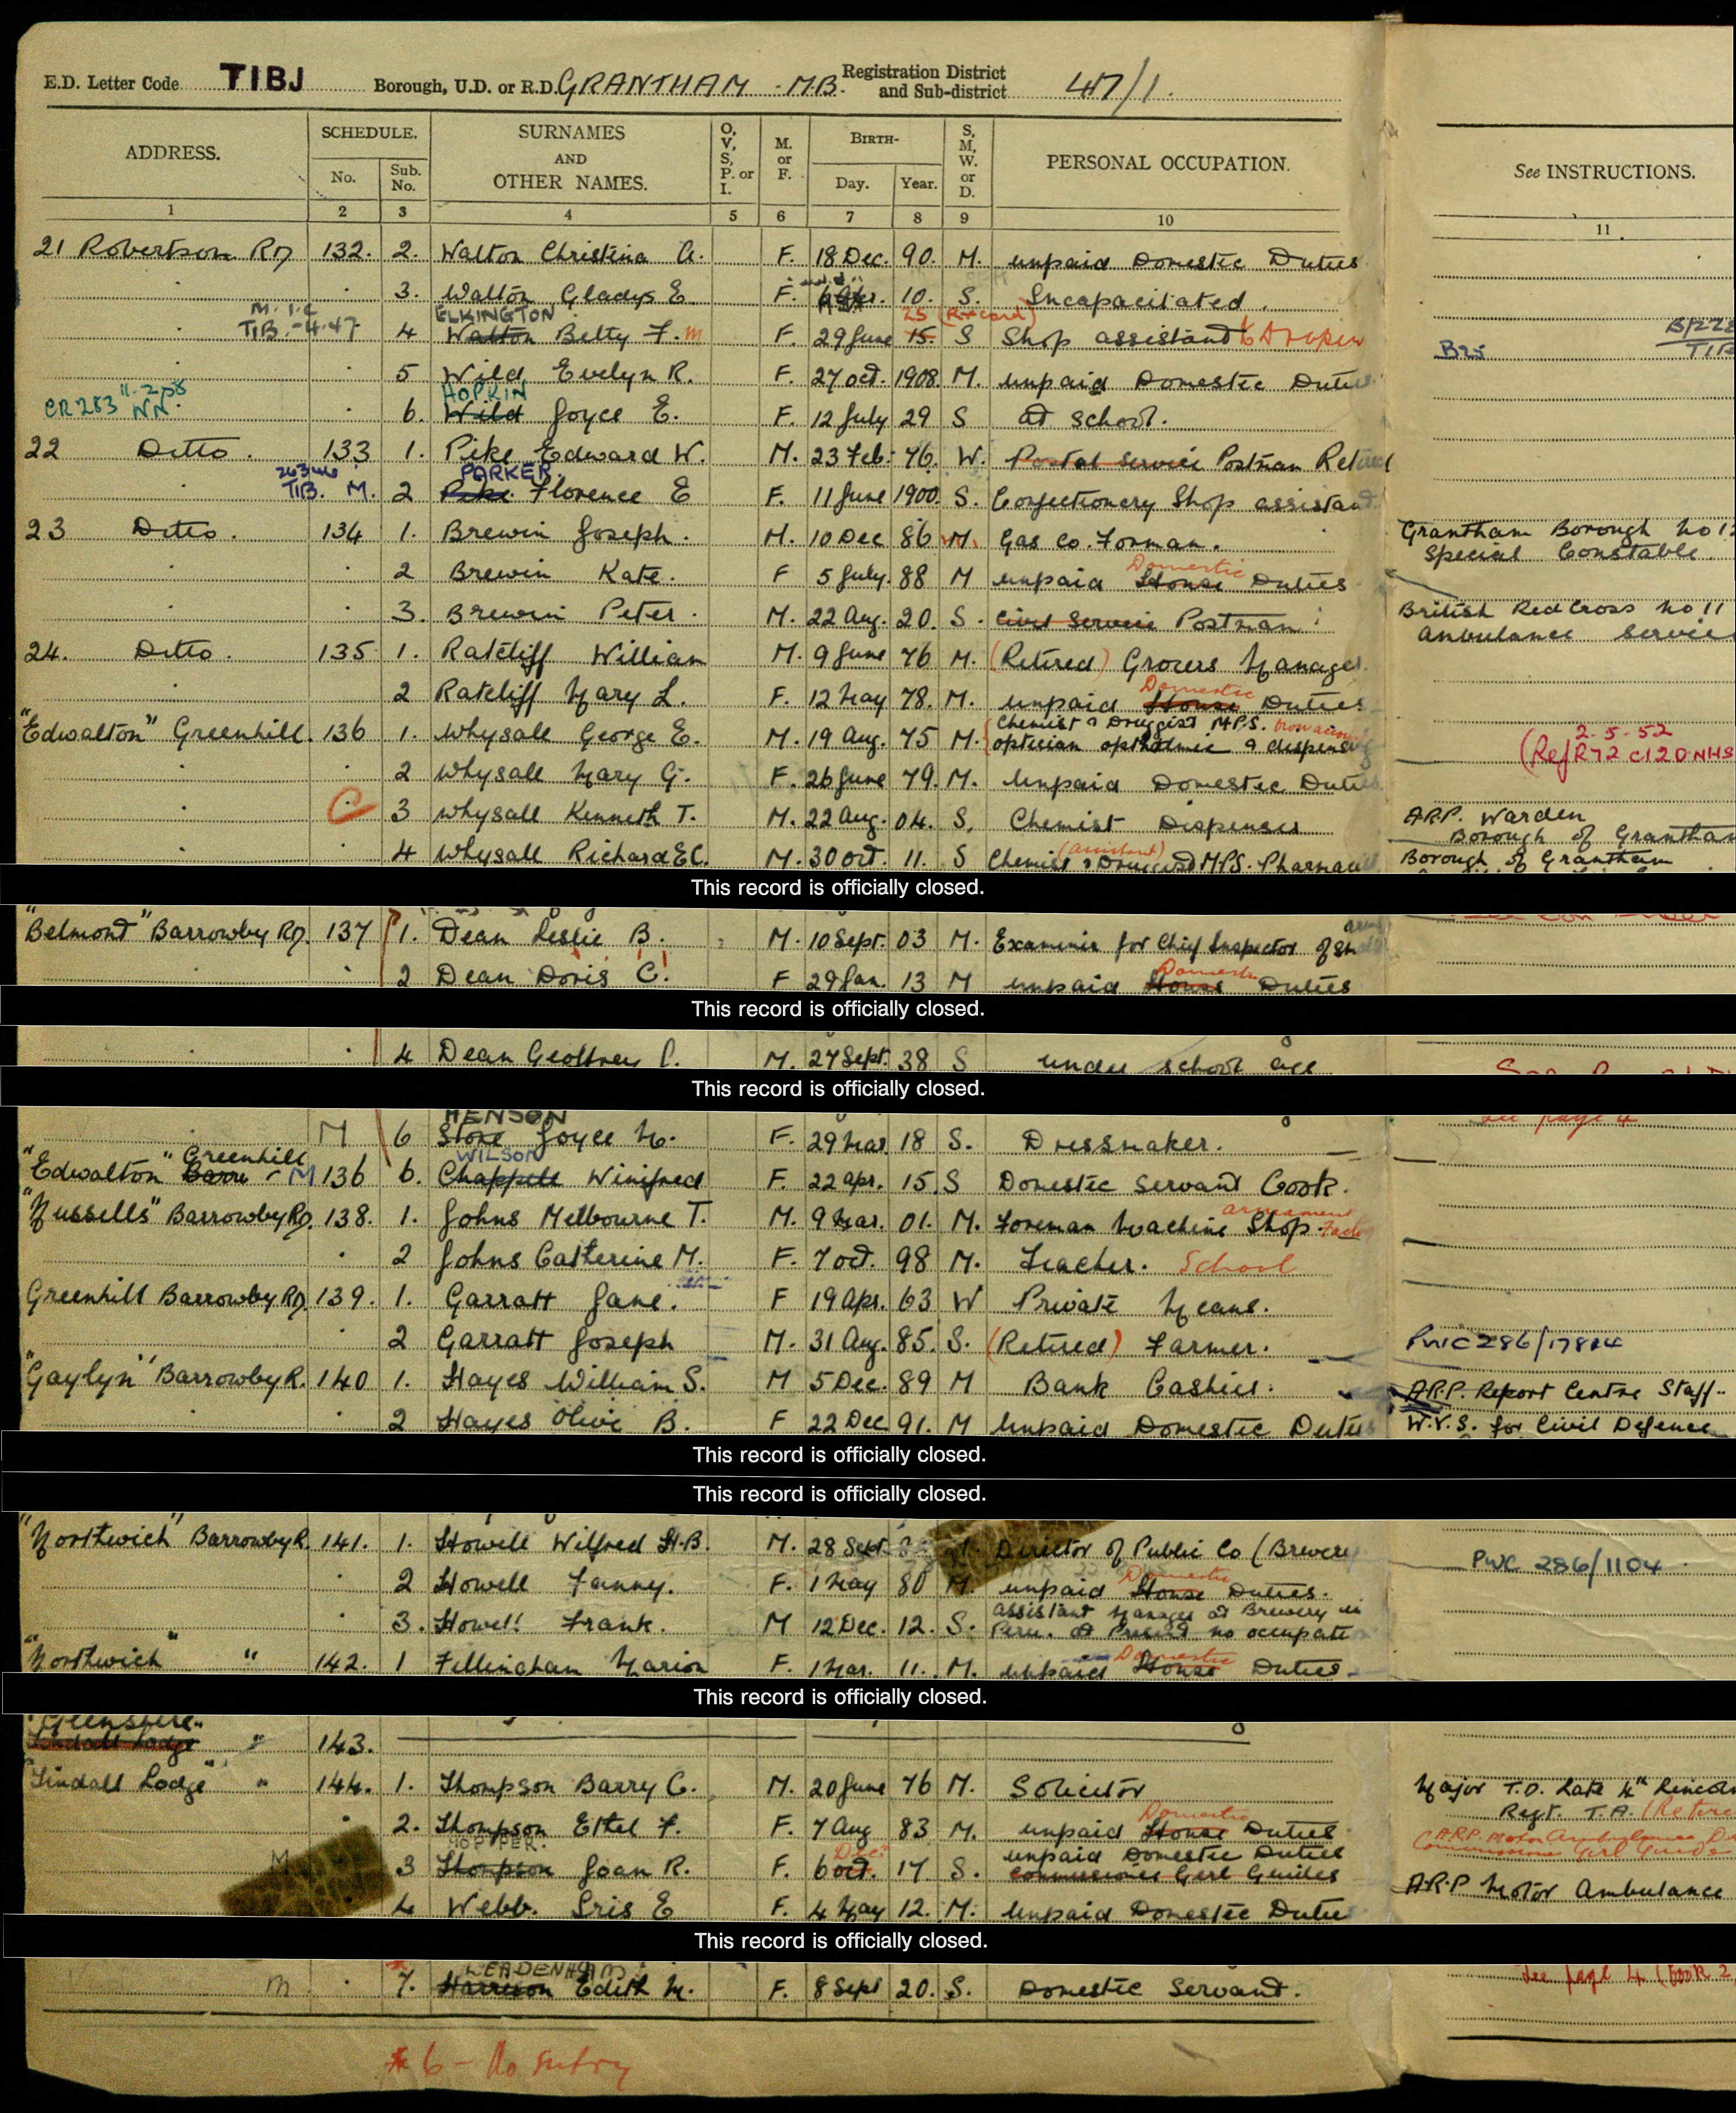 E.D. Letter Code TIBJ Borough, U.D. or R.D. GRANTHAM M.B. Registration District and Sub-district 47/1.
ADDRESS. SCHEDULE. No. Sub. No. SURNAMES AND OTHER NAMES. O, V, S, P. or I. M. or F. BIRTH- Day. Year. S, M, W. or D. PERSONAL OCCUPATION. See INSTRUCTIONS.
1 2 3 4 5 6 7 8 9 10 11
21 Robertson Rd 132. 2. Walton Christina A. F. 18 Dec. 90. M. unpaid Domestic Duties
3. Walton Gladys E. F. 10. S. Incapacitated.
M. I.C ELKINGTON 25 (Record)
TIB. -4.47 4 Walton Betty F. m F. 29 June 15. S Shop assistant B25 TIB
5 Wild Evelyn R. F. 27 Oct. 1908. M. unpaid Domestic Duties
11.2.58 HOPKIN
CR 283 NN. 6. Wild Joyce E. F. 12 July 29 S at School.
22 Ditto. 133 1. Pike Edward W. M. 23 Feb. 76. W. Postal Service Postman Retired
PARKER.
TIB. M. 2 Pike Florence E F. 11 June 1900. S. Confectionery Shop assistant
23 Ditto. 134 1. Brewin Joseph. M. 10 Dec 86 M. Gas Co. Forman. Grantham Borough No 12
Special Constable.
Domestic
2 Brewin Kate. F 5 July. 88 M unpaid House Duties
3. Brewin Peter. M. 22 Aug. 20. S. Civil Service Postman British Red Cross No 11
Ambulance Service
24. Ditto. 135 1. Ratcliff William M. 9 June 76 M. (Retired) Grocers Manager.
Domestic
2 Ratcliff Mary L. F. 12 May 78. M. unpaid House Duties
"Edwalton" Greenhill. 136 1. Whysall George E. M. 19 Aug. 75 M. Chemist & Druggist M.P.S.
optician opthalmic & dispensing 2-5-52
(Ref R72 C120 NHS
2 Whysall Mary G. F. 26 June 79. M. Unpaid Domestic Duties
3 Whysall Kenneth T. M. 22 Aug. 04. S. Chemist Dispenser ARP. Warden
Borough of Grantham
(assistant)
4 Whysall Richard E C. M. 30 Oct. 11. S Chemist & Druggist M.P.S. Borough of Grantham
This record is officially closed.
"Belmont" Barrowby Rd. 137 1. Dean Leslie B. M. 10 Sept. 03 M. Examiner for Chief Inspector of
Domestic
2 Dean Doris C. F 29 Jan. 13 M unpaid House Duties
This record is officially closed.
4 Dean Geoffrey M. 27 Sept. 38 S under school age
This record is officially closed.
HENSON see page 4
M 6 Stone Joyce M. F. 29 Mar 18 S. Dressmaker.
Greenhill WILSON
"Edwalton" M 136 6. Chappell Winifred F. 22 Apr. 15. S Domestic Servant Cook.
armament
"Mussells" Barrowby Rd. 138. 1. Johns Melbourne T. M. 9 Mar. 01. M. Foreman Machine Shop.
2 Johns Catherine M. F. 7 Oct. 98 M. Teacher. School
Greenhill Barrowby Rd. 139. 1. Garratt Jane. F 19 Apr. 63 W Private Means.
2 Garratt Joseph M. 31 Aug. 85. S. (Retired) Farmer.
"Gaylyn" Barrowby R. 140 1. Hayes William S. M 5 Dec. 89 M Bank Cashier. A.R.P. Report Centre Staff.
2 Hayes Olive B. F 22 Dec 91. M Unpaid Domestic Duties W.V.S. for Civil Defence
This record is officially closed.
This record is officially closed.
"Northwich" Barrowby R. 141. 1. Howell Wilfred H.B. M. 28 Sept. Director of Public Co (Brewery PWC 286/1104
Domestic
2 Howell Fanny. F. 1 May 80 M. unpaid House Duties.
3. Howell Frank. M 12 Dec. 12. S. assistant Manager at Brewery in
Peru. at Present no occupation
Domestic
"Northwich" " 142. 1 Fillingham Marion F. 1 Mar. 11. M. unpaid House Duties
This record is officially closed.
" 143.
"Tindall Lodge" " 144. 1. Thompson Barry C. M. 20 June 76 M. Solicitor Major T.D. Late 4th Lincoln
Regt. T.A. (Retired
Domestic
2. Thompson Ethel F. F. 7 Aug 83 M. unpaid House Duties
HOPPER. Dec. unpaid Domestic Duties
3 Thompson Joan R. F. 6 Oct. 17 S. commissioner Girl Guides ARP Motor Ambulance
4 Webb. Iris E F. 4 May 12. M. Unpaid Domestic Duties
This record is officially closed.
LEADENHAM see page 4 (Book 2
m 7. Harrison Edith M. F. 8 Sept 20. S. Domestic Servant.
* 6 - No entry